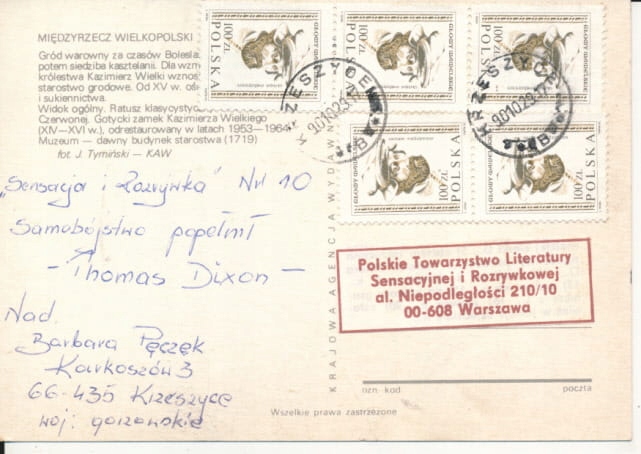 MIĘDZYRZECZ WIELKOPOLSKI
Gród warowny za czasów Bolesła
potem siedziba kasztelana. Dla wzm
królestwa Kazimierz Wielki wznos
starostwo grodowe. Od XV w. oś
i sukiennictwa.
Widok ogólny. Ratusz klasycystyc
Czerwonej. Gotycki zamek Kazimierza Wielkiego
(XIV—XVI w.), odrestaurowany w latach 1953—1964
Muzeum — dawny budynek starostwa (1719)
fot. J. Tymiński — KAW
100 ZŁ
POLSKA
100 ZŁ
POLSKA
100 ZŁ
POLSKA
GŁOWY WAWELSKIE
100 ZŁ
POLSKA
GŁOWY WAWELSKIE
100 ZŁ
POLSKA
GŁOWY WAWELSKIE
KRZESZYCE
KRZESZYCE
„Sensacja i Rozrywka" Nr 10
Samobójstwo popełnił
- Thomas Dixon -
Nad.
Barbara Pęczek
Karkoszów 3
66-435 Krzeszyce
woj: gorzowskie
KRAJOWA AGENCJA WYDAWN
Polskie Towarzystwo Literatury
Sensacyjnej i Rozrywkowej
al. Niepodległości 210/10
00-608 Warszawa
ozn. kod
poczta
Wszelkie prawa zastrzeżone